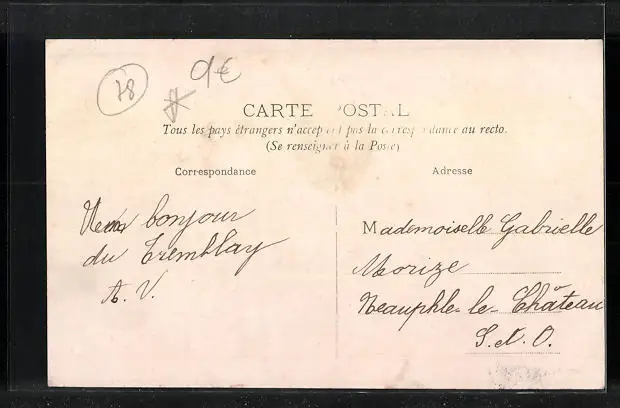 78
9€
CARTE POSTALE
Tous les pays étrangers n'acceptent pas la correspondance au recto.
(Se renseigner à la Poste)
Correspondance
Adresse
bonjour
du Tremblay
A. V.
Mademoiselle Gabrielle
Morize
Neauphle-le-Château
S. & O.